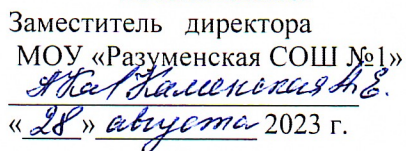 Заместитель директора
МОУ «Разуменская СОШ №1»
Каменская А.Е.
«28» августа 2023 г.